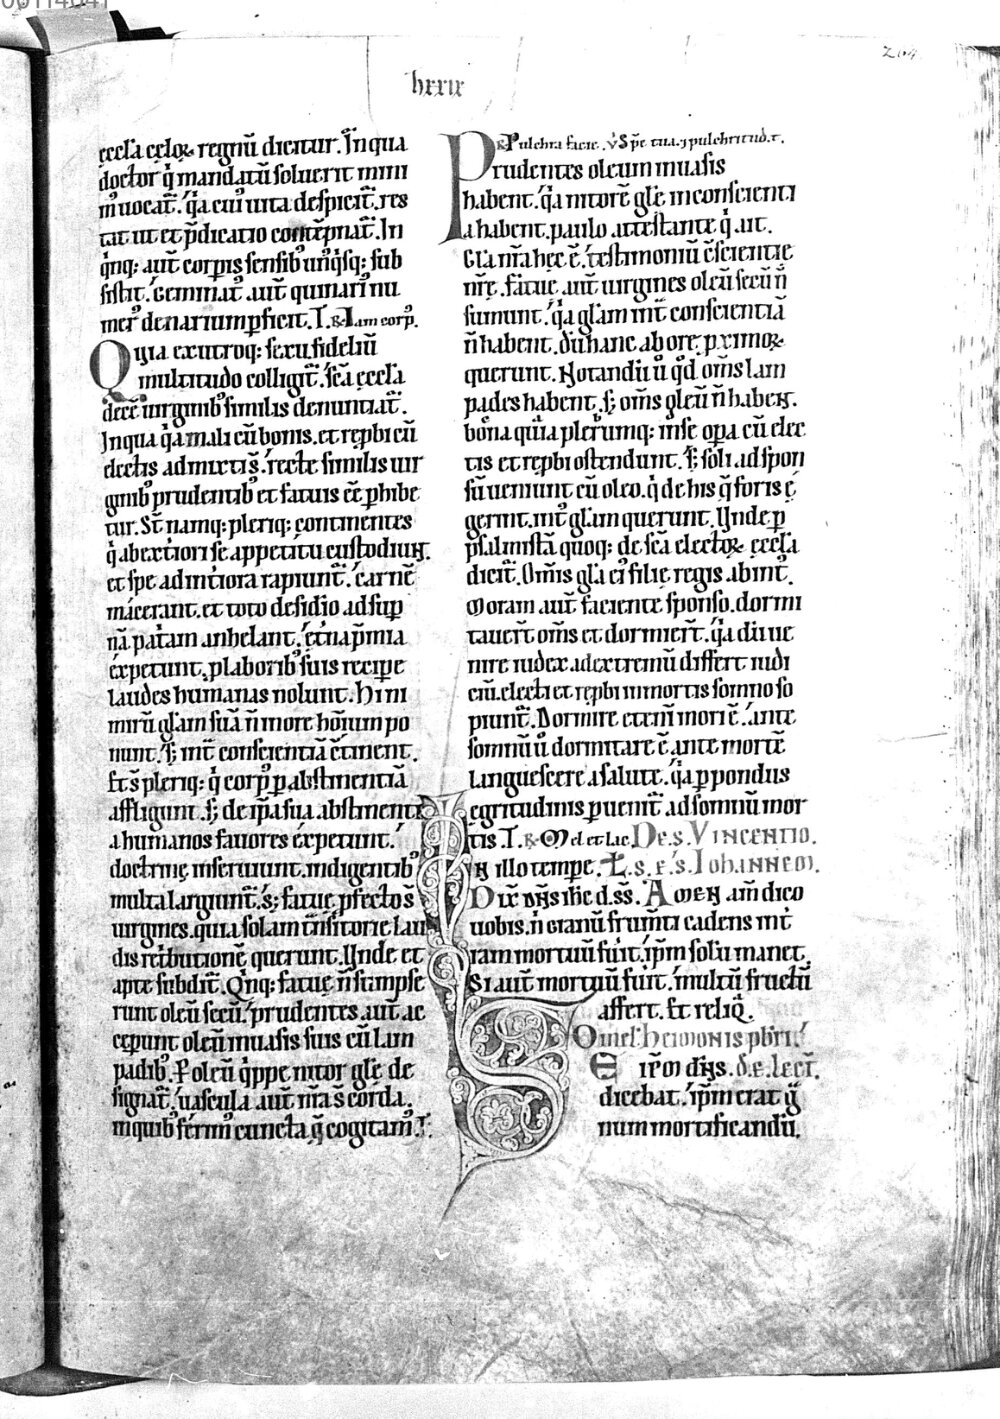 204
lxxix
ęccl'a cęloꝝ regnū dicitur. In qua
doctor q̇ mandatū soluerit mini
m᷒ uocat᷑. q̇a cui᷒ uita despicit᷑. res
tat ut et p̄dicatio contēpnat᷑. In
q̇nq; aut̄ corpis sensib᷒ un᷒q̇sq; sub
sistit. Geminat᷒ aut̄ quinari᷒ nu
mer᷒ denarium ꝑficit. T. R̄ Iam corp᷒.
Quia ex utroq; sexu fidelium
multitudo colligit᷑. sc̄a ęccl'a
dece᷒ uirginib᷒ similis denuntiat᷑.
In qua q̇a mali cū bonis. et rep̄bi cū
electis admixti s̄. recte similis uir
ginib᷒ prudentib᷒ et fatuis ēē ꝑhibe
tur. St̄ namq; pleriq; continentes
q̇ ab exteriori se appetitu custodiun̄.
et spe ad interiora rapiunt᷑. carnē
macerant. et toto desiderio ad sup
nā patriam anhelant. ętna p̄mia
expetunt. ꝑ laborib᷒ suis recipe
laudes humanas nolunt. Hi ni
mirū gl'am suā n̄ in ore hominum po
nunt. s; int᷑ conscientiā ꝯtinent.
Et s̄ pleriq; q̇ corp᷒ ꝑ abstinentiā
affligunt. s; de ip̄a sua abstinenti
a humanos fauores expetunt.
doctrinę inseruiunt. indigentib᷒
multa largiunt᷑. s; fatuę ꝓfecto s̄
uirgines. quia solam transitorię lau
dis retributionē querunt. Unde et
apte subdit᷑. Q̇nq; fatuę n̄ sumpse
runt oleū secū. prudentes aut̄ ac
cęperunt oleū in uasis suis cū lam
padib᷒. Ꝑ oleū q̇ppe nitor glę de
signat᷑. uascula aut̄ nr̄a s̄ corda.
in quib᷒ ferim᷒ cuncta q̄ cogitam᷒. T.
R̄ Pulchra facie. V̄ Spe tua. ⁊ pulchritud. t.
Prudentes oleum in uasis
habent. q̇a nitorē glę in conscienti
a habent. paulo attestante q̇ ait.
Gl'a nr̄a hęc ē. testimoniū ꝯscientię
nr̄ę. Fatuę aut̄ uirgines oleū secū n̄
sumunt. q̇a gl'am int᷑ conscientiā
n̄ habent. dū hanc ab ore ꝓximoꝝ
querunt. Notandū ū qd̄ om̄s lam
pades habent. s; om̄s oleū n̄ habent.
bona quia plerumq; in se opa cū elec
tis et rep̄bi ostendunt. s; soli ad spon
sū ueniunt cū oleo. q̇ de his q̄ foris e
gerint. int᷑ gl'am querunt. Unde p
psalmistā quoq; de sc̄a electoꝝ ęccl'a
dicit᷑. Om̄is gl'a ei᷒ filię regis ab int᷒.
Moram aut̄ faciente sponso. dormi
tauer̄t om̄s et dormier̄t. q̇a dū ue
nire iudex ad extremū differt iudi
ciū. electi et rep̄bi in mortis somno so
piunt᷑. Dormire etenim mori ē. ante
somnū ū dormitare ē ante mortē
languescere a salute. q̇a ꝑ pondus
egritudinis puenit᷑ ad somnū mor
tis T. R̄ Mel et lac. De s. VINCENTIO.
In illo tempe. L. S. E. S. IOHANNEM.
Dix̄ dn̄s ih̄c d. ss. Amen am̄ dico
uobis. n̄ granū frum̄ti cadens int̄
ram mortuū fuit. ip̄m solū manet.
Si aut̄ mortuū fuit. multū fructū
affert. Et reliq̄.
Omel'. Heimonis pbr̄i.
Ip̄m dn̄s. d. e. lect᷑.
E
dicebat. ip̄m erat g̓
num mortificandū.